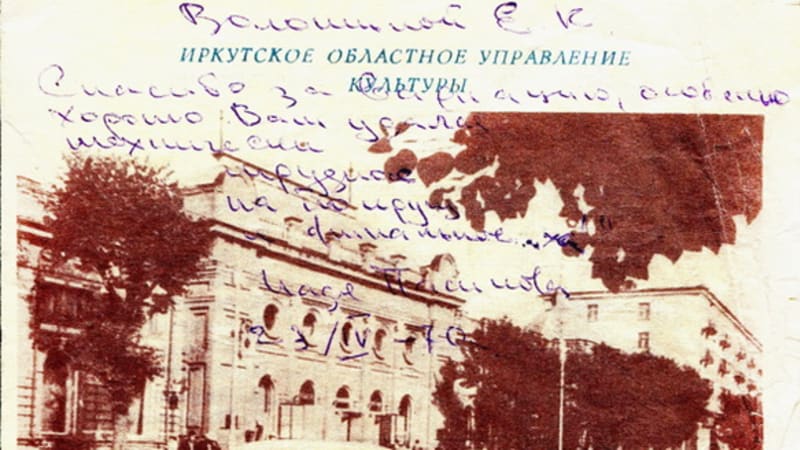 Волошиной Е К.
ИРКУТСКОЕ ОБЛАСТНОЕ УПРАВЛЕНИЕ
КУЛЬТУРЫ
Спасибо за особенно
хорошо Вам
технически
трудное
на
и финальное „ха"
Надя
23/IV-70